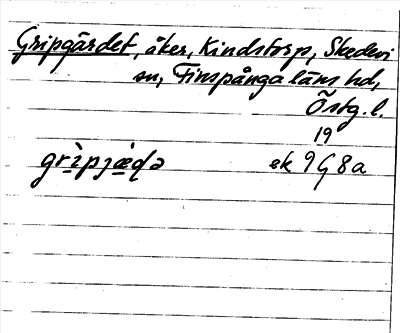 Gripgärdet, åker, Kindstorp, Skedevi
sn, Finspånga läns hd,
Östg. l.
19
grìpjæ̀ɖə ek 9G8a